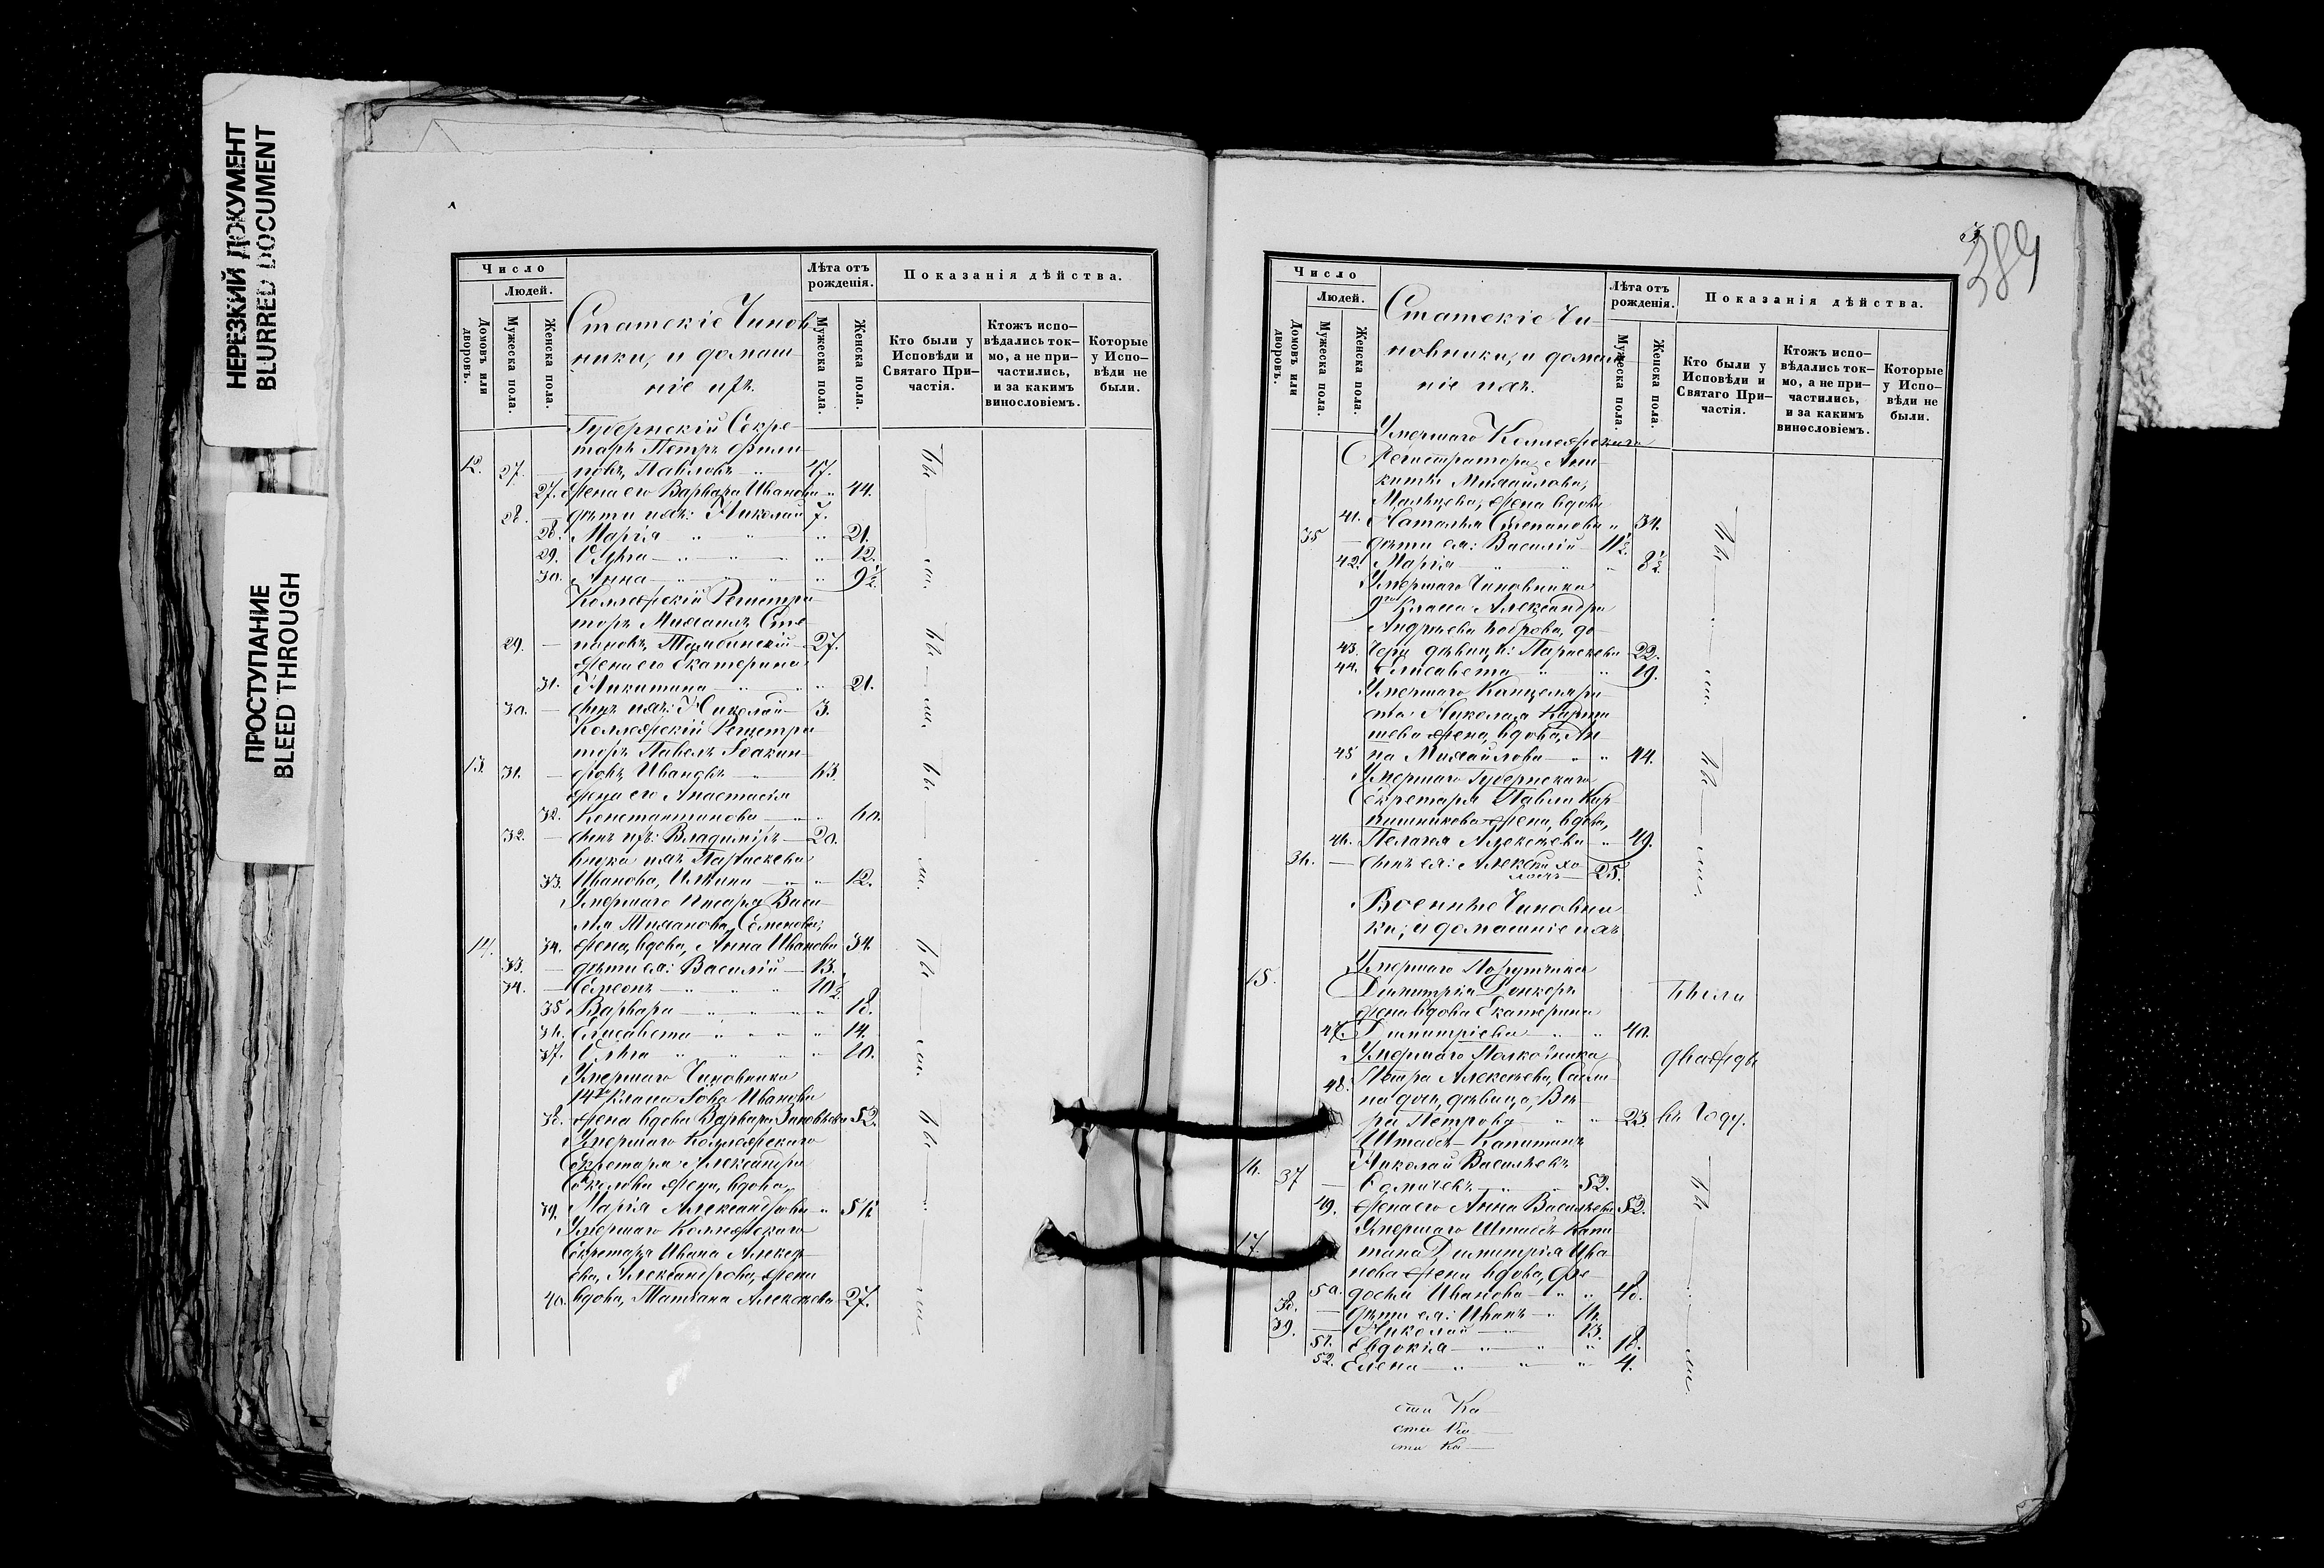 НЕРЕЗКИЙ ДОКУМЕНТ
BLURRED DOCUMENT
ПРОСТУПАНИЕ
BLEED THROUGH
Число
Людей.
Домовъ или дворовъ.
Мужеска пола.
Женска пола.
Статскіе Чинов-
ники, и домаш-
ніе ихъ.
Лѣта отъ рожденія.
Мужеска пола.
Женска пола.
Показанія дѣйства.
Кто были у Исповѣди и Святаго При-частія.
Ктожъ испо-вѣдались ток-мо, а не при-частились, и за какимъ винословіемъ.
Которые у Испо-вѣди не были.
Губернскій Секре-
тарь Петръ Филип-
12. 27. — повъ, Павловъ — 47.
27. Жена его Варвара Иванова 44.
28. — дѣти ихъ: Николай 7.
28. Марія 21.
29. 12.
30. Анна 9½
Коллежскій Регистра-
торъ Михаилъ Сте-
29. — пановъ, — 27.
Жена его Екатерина
31. Никитина 21.
30. — сынъ ихъ: Николай — 3.
Коллежскій Регистра-
торъ Павелъ Іоакин-
13. 31. — фовъ, Ивановъ — 63.
Жена его Анастасія
32. Константинова — 60.
32. — сынъ ихъ: Владиміръ — 20.
внука ихъ Параскева
33. Иванова, — 12.
Умершаго Писаря Васи-
лія Семенова,
14. 34. Жена, вдова, Анна Иванова 34.
33. — дѣти ея: Василій — 13.
34. — Семенъ — 10½
35 Варвара — 18.
36. Елисавета 14.
37. 10.
Умершаго Чиновника
14го Класса Іова Иванова
38. Жена вдова Варвара 52.
Умершаго Коллежскаго
Секретаря Александра
Соколова жена, вдова,
39. Марія Александрова 56
Умершаго Коллежскаго
Секретаря Ивана Алексѣ-
ева, Александрова, жена
40. вдова, Татіана Алексѣева 27.
389
Число
Людей.
Домовъ или дворовъ.
Мужеска пола.
Женска пола.
Статскіе Чи-
новники, и домаш-
ніе ихъ.
Лѣта отъ рожденія.
Мужеска пола.
Женска пола.
Показанія дѣйства.
Кто были у Исповѣди и Святаго При-частія.
Ктожъ испо-вѣдались ток-мо, а не при-частились, и за какимъ винословіемъ.
Которые у Испо-вѣди не были.
Умершаго Коллежскаго
Регистратора Ани-
киты Михаилова,
Мальцева, жена вдова
41. Наталья Степанова 34.
35 — дѣти ея: Василій — 11½.
42. Марія 8½
Умершаго Чиновника
9го Класса Александра
Андреева Боброва, до-
43. чери дѣвицы: Параскева 22.
44. Елисавета 19.
Умершаго Канцеляри-
ста Николая
жена, вдова, Ан-
45 на Михайлова — 44.
Умершаго Губернскаго
Секретаря Павла Кир-
пишникова жена, вдова,
46. Пелагія Алексѣева 49.
36. — сынъ ея: Алексѣй, хо-
лостъ — 25.
Военные Чиновни-
ки, и домашніе ихъ
Умершаго Поручика
15. Димитрія
жена вдова Екатерина
47 Димитріева 40.
Умершаго Полковника
48. Петра Алексѣева,
на дочь, дѣвица, Вѣ-
ра Петрова 23.
были
дважды
въ году.
Штабсъ-Капитанъ
Николай Васильевъ
16. 37 — 52.
49. Жена его Анна Васильева 52.
Умершаго Штабсъ-Капи-
17. тана Димитрія Ива-
нова жена вдова, Фео-
50. досья Иванова 48.
38. — дѣти ея: Иванъ 16.
39. — Николай — 13.
51. Евдокія — 18.
52. Елена — 4.
сти Ка—
сти Ка—
сти Ка—